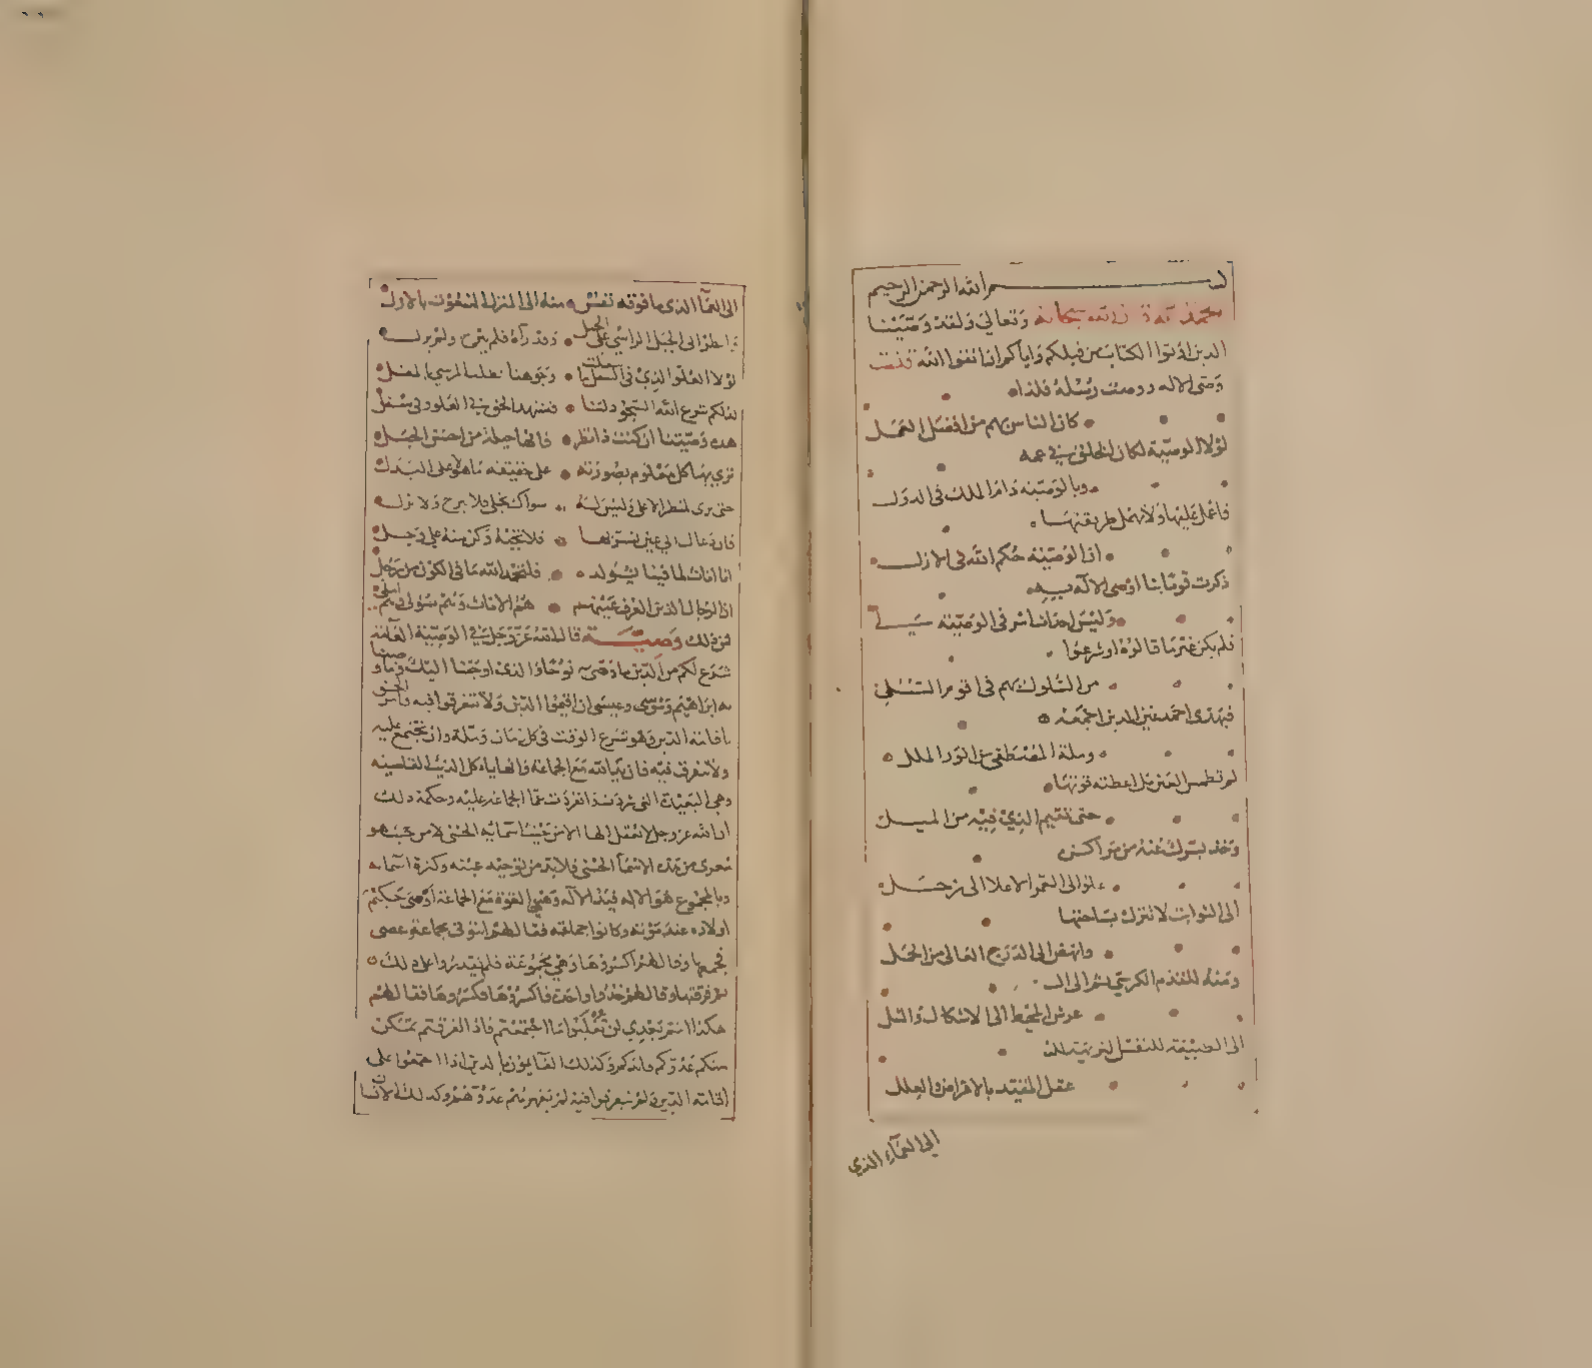 بسم الله الرحمن الرحيم
وتعالى ولقد وصينا
الذين اوتوا الكتاب من قبلكم واياكم ان اتقوا الله
وصى الاله و وصت رسله فلذا
كان التاسى بهم من افضل العمل
لولا الوصية لكان الخلق فى عمه
وبالوصية دام الملك فى الدول
فاعمل عليها ولا تهمل طريقتها
ان الوصية حكم الله فى الازل
ذكرت قوما بما اوصى الاله به
وليس احداث امر فى الوصية لى
فلم يكن غير ما قالوه او شرعوا
من السلوك بهم فى اقوم السبل
فهدى احمد عين الدين اجمعه
وملة المصطفى من انور الملل
لم تطمس العين بل اعطته قوتها
حتى تقيم الذى فيه من الميل
وخذ بسرك عنه من مراكز
علوا الى القمر الاعلا الى زحل
الى الثوابت لا تنزل بساحتها
وانهض الى الدرج العالى من الحمل
ومنه للقدم الكرسى ثم الى ال
عرش المحيط الى الاشكال والمثل
الى الطبيعة للنفس النزيهة لل
عقل المقيد بالاعراض والعلل
الى العماء الذي
الى العماء الذى ما فوقه نفس منه الى المنزل المنعوت بالازل
وانظر الى الجبل الراسى على الجبل وقد رآه فلم يبرح ولم يزل
لولا العلو الذي فى السفل ما سفلت وجوهنا تطلب المرءي بالمقل
لذلكم شرع الله السجود لنا فنشهد الحق فى العلو وفى سفل
هذى وصيتنا ان كنت ذا نظر فانها حيلة من احسن الحيل
ترى بها كل معلوم بصورته على حقيقة ما هو لا على البدل
حتى ترى المنظر الاعلى وليس له سواك مجلى فلا تبرح ولا تزل
فان دعاك الى عين تسر بها فلا تجبه وكن منه على وجل
انا اناث لما فينا يولد فلنحمد الله ما فى الكون من رجل
ان الرجال الذين العرف عينهم هم الاناث وهم سؤلى وهم املى
فمن ذلك وصية قال الله عز وجل فى الوصية العامة
شرع لكم من الدين ما وصى به نوحا والذى اوحينا اليك وما وصينا
به ابراهيم وموسى وعيسى ان اقيموا الدين ولا تتفرقوا فيه وامر الحق
باقامة الدين وهو شرع الوقت فى كل زمان وملة وان يجتمع عليه
ولا يتفرق فيه فان يد الله مع الجماعة وانما ياكل الذئب القاصية
وهى البعيدة التى شردت وانفردت عما الجماعة عليه وحكمة ذلك
ان الله عز وجل لا يعقل الها الا من حيث اسمائه الحسنى لا من حيث هو
معرى من هذه الاسماء الحسنى فلا بد من توحيد عينه وكثرة اسمائه
وبالمجموع هو الاله فيد الاله وهى القوة مع الجماعة اوصى حكيم
اولاده عند موته وكانوا جماعة فقال لهم ايتونى بجماعة عصى
فجمعها وقال لهم اكسروها وهى مجموعة فلم يقدروا على ذلك
ثم فرقها وقال لهم خذوا واحدة فاكسروها فكسروها فقال لهم
هكذا انتم بعدي لن تغلبوا ما اجتمعتم فاذا تفرقتم تمكن
منكم عدوكم وكذلك القائمون بالدين اذا اجتمعوا على
اقامة الدين ولم يتفرقوا فيه لم يقهرهم عدو وكذلك الانسان